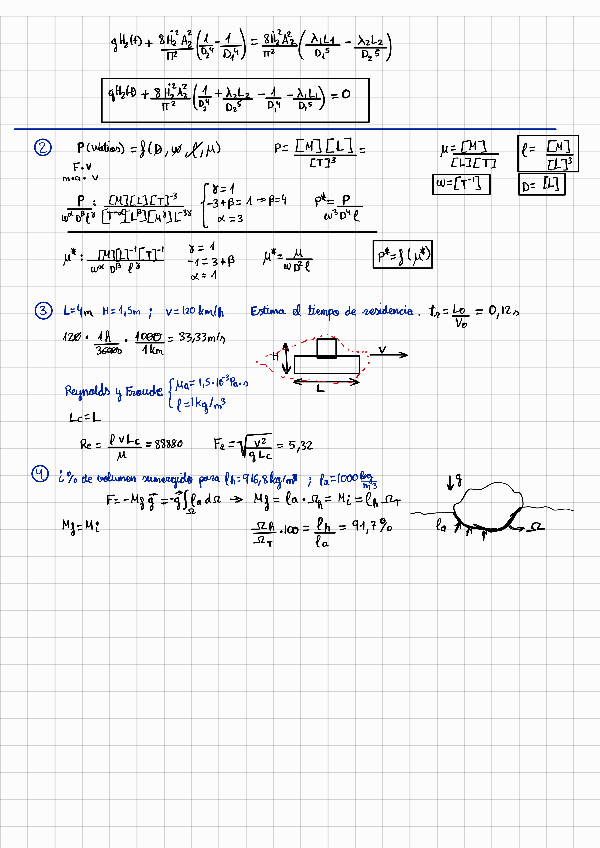 gH₂(t) + 8Ḣ₂²A₂²/Π² (1/D₂⁴ - 1/D₁⁴) = 8Ḣ₂²A₂²/Π² (λ₁L₁/D₁⁵ - λ₂L₂/D₂⁵)
gH₂(t) + 8Ḣ₂²A₂²/Π² (1/D₂⁴ + λ₂L₂/D₂⁵ - 1/D₁⁴ - λ₁L₁/D₁⁵) = 0
② P(Watios) = f(D, ω, ρ, μ) P = [M][L]/[T]³ = μ = [M]/[L][T] ρ = [M]/[L]³
F·v
m·a · v
ω = [T⁻¹] D = [L]
P/ω^αD^βρ^γ : [M][L][T]⁻³/[T⁻α][L^β][M^γ][L]⁻³γ { γ = 1 -3+β = 1 → β = 4 α = 3 P* = P/ω³D⁴ρ
μ* : [M][L]⁻¹[T]⁻¹/ω^α D^β ρ^γ γ = 1 -1 = 3+β α = 1 μ* = μ/ωD²ρ P* = f(μ*)
③ L=4m H=1,5m ; V=120 km/h Estima el tiempo de residencia. t₂ = L₀/V₀ = 0,12s
120 · 1h/3600s · 1000/1km = 33,33 m/s
H V
L
Reynolds y Froude { μa = 1,5·10⁻³ Pa·s
ρ = 1kg/m³
Lc = L
Re = ρvLc/μ = 88880 Fr = √(v²/gLc) = 5,32
④ ¿% de volumen sumergido para ρh = 916,8 kg/m³ ; ρa = 1000 kg/m3
F = -Mf g⃗ = -g⃗ ∫Ω ρa dΩ ⇒ Mf = ρa · Ωh = Mi = ρh ΩT
Mf = Mi Ωh/ΩT · 100 = ρh/ρa = 91,7%
g
ρa Ω